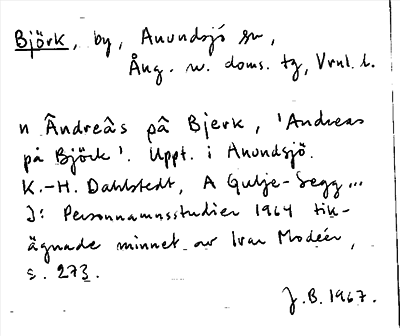 Björk, by, Anundsjö sn,
Ång. v. doms. tg, Vrnl. l.
n Ândreâs pâ Bjerk, 'Andreas
på Björk'. Uppt. i Anundsjö.
K.-H. Dahlstedt, A Gulje-Segg...
I: Personnamnsstudier 1964 till-
ägnade minnet av Ivar Modéer,
s. 273.
J.B. 1967.